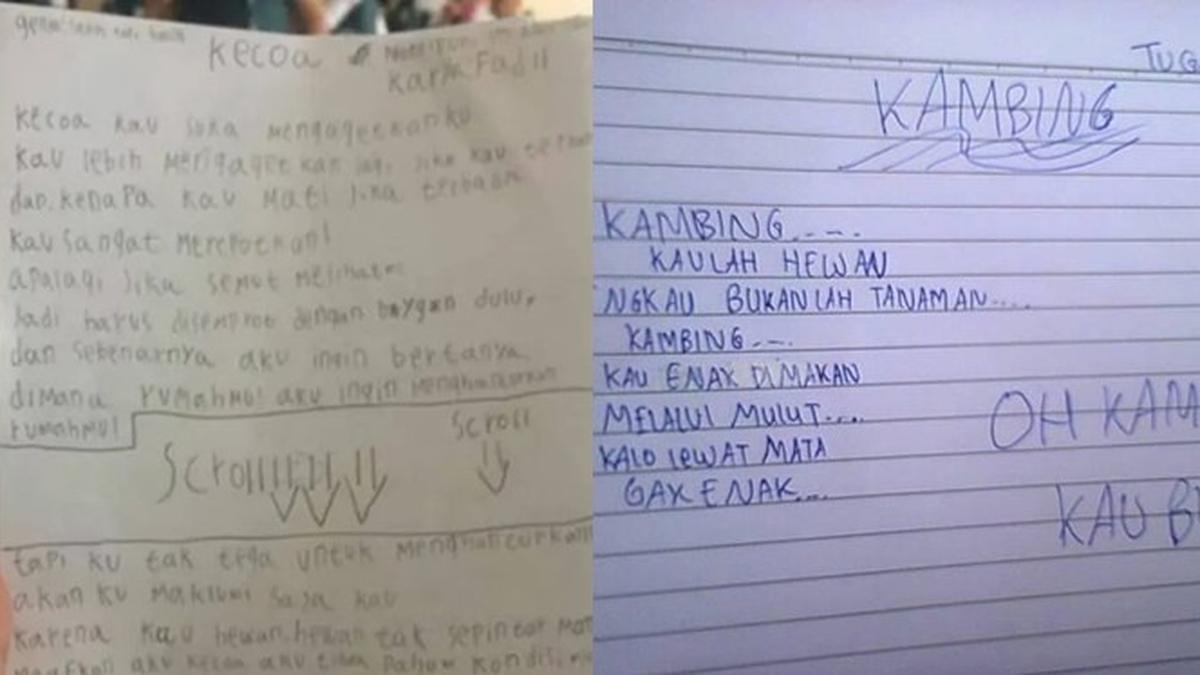 Kecoa
Karya Fadil
Kecoa kau suka mengagetkanku
kau lebih mengagetkan lagi jika kau
dan kenapa kau mati jika terbang
kau sangat merepotkan!
apalagi jika semut
Jadi harus disemprot dengan baygon dulu,
dan sebenarnya aku ingin bertanya
dimana rumahmu! aku ingin menghancurkan
rumahmu!
Scroll
Scrollllll
tapi ku tak tega untuk menghancurkan
akan ku maklumi saja kau
karena kau hewan, hewan tak sepintar
aku kecoa aku tidak paham kondisi
TUG
KAMBING
KAMBING....
KAULAH HEWAN
NGKAU BUKANLAH TANAMAN....
KAMBING....
KAU ENAK DIMAKAN
MELALUI MULUT....
KALO LEWAT MATA
GAK ENAK...
OH KAM
KAU B